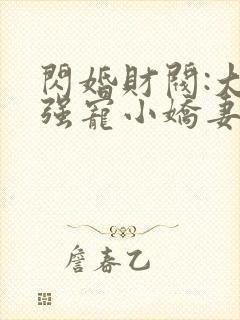 閃婚財閥:大
强寵小嬌妻
詹春乙